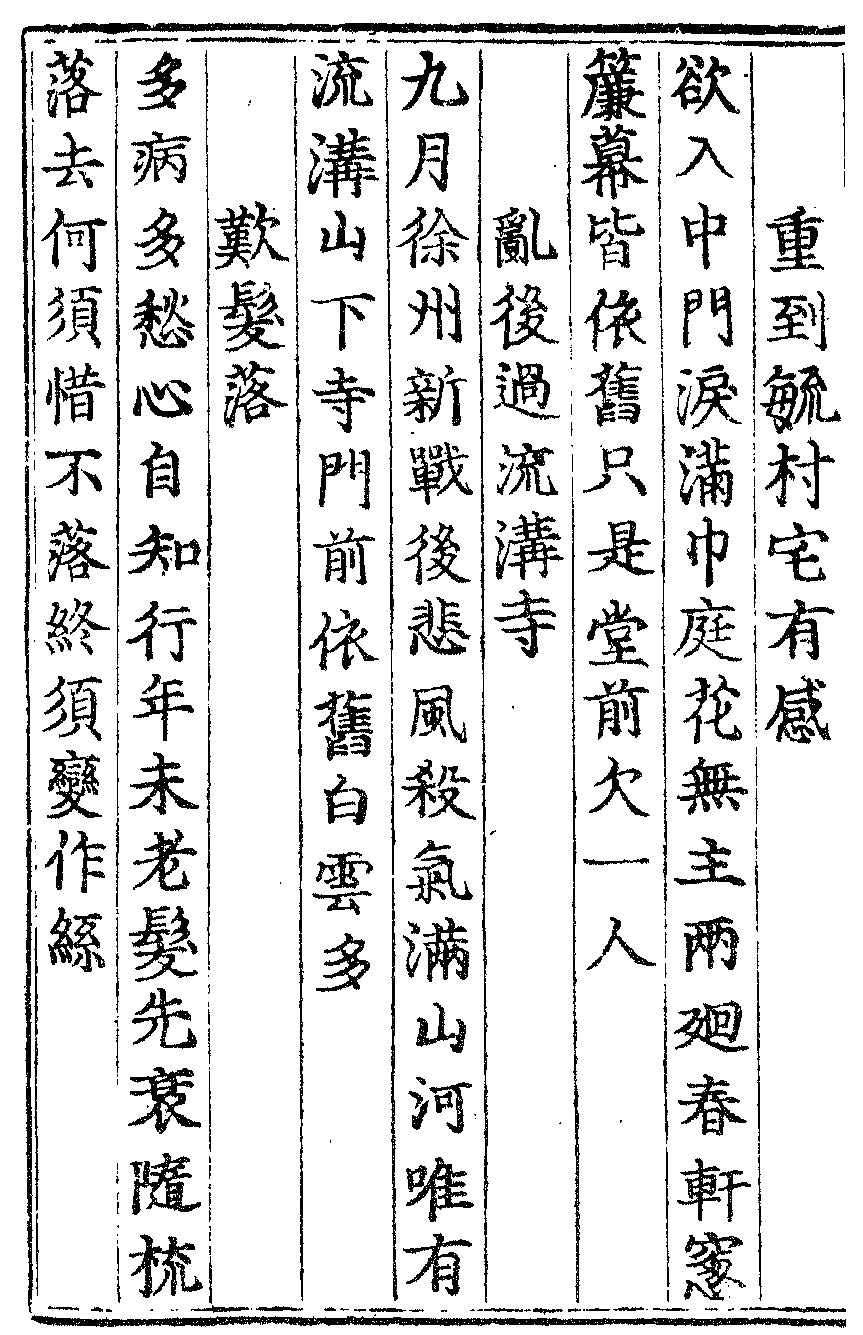 重到毓村宅有感
欲入中門淚滿巾庭花無主兩廻春軒窻
簾幕皆依舊只是堂前欠一人
亂後過流溝寺
九月徐州新戰後悲風殺氣滿山河唯有
流溝山下寺門前依舊白雲多
歎髮落
多病多愁心自知行年未老髮先衰隨梳
落去何須惜不落終須變作絲